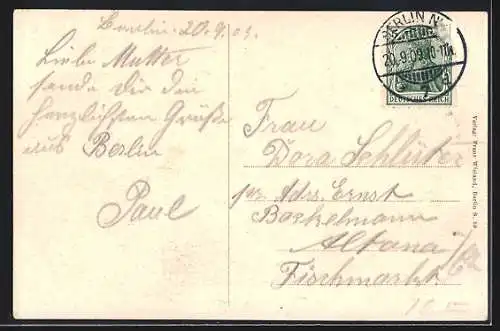 Berlin. 20.9.09.
Liebe Mutter
sende Dir die
herzlichsten Grüße
aus Berlin
Paul
BERLIN N
20.9.09.10-11N.
DEUTSCHES REICH
Frau
Dora Schlüter
pr. Adrs. Ernst
Boskelmann
Altona/Elb
Fischmarkt
Verlag: Franz
Berlin S.